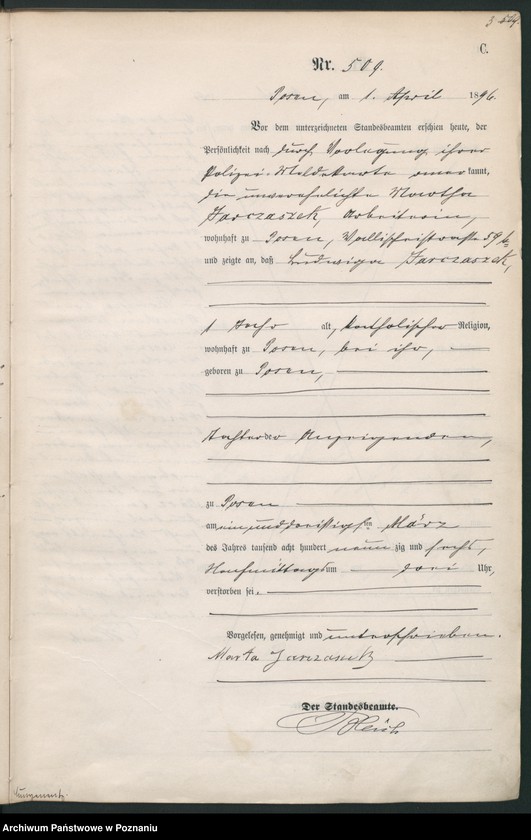 C.
Nr. 509.
Posen, am 1. April 1896.
Vor dem unterzeichneten Standesbeamten erschien heute, der
Persönlichkeit nach durch Vorlegung ihrer
Polizei-Meldekarte anerkannt,
die unverehelichte Martha
Jarczaszek, Arbeiterin,
wohnhaft zu Posen, Wallischeistraße 59
und zeigte an, daß Ludwiga Jarczaszek,
1 Jahr alt, katholischer Religion,
wohnhaft zu Posen, bei ihr,
geboren zu Posen,
Tochter der Anzeigenden,
zu Posen
am ein und dreißigsten März
des Jahres tausend acht hundert neun zig und sechs,
Nachmittags um drei Uhr,
verstorben sei.
Vorgelesen, genehmigt und unterschrieben.
Marta Jarczasek
Der Standesbeamte.
Archiwum Państwowe w Poznaniu